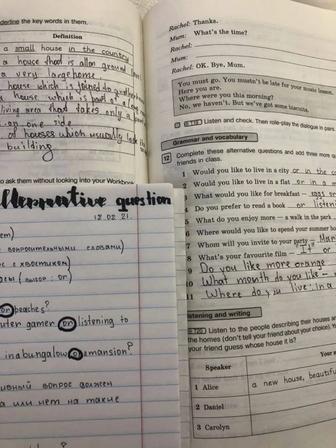 derline the key words in them.
Definition
a small house in the country
a house that is all on ground
a very large home
house which is joined to
a house, which is part of a
living area that takes only a
on one side
of houses which usually look the
building
to ask them without looking into your Workbook
alternative question
12.02.21.
вопросительными словами)
с хвостиком)
or
or peaches?
uter gamer or listening to
in a bungalow or mansion?
вный вопрос должен
а или нет на такие
Rachel: Thanks.
Mum: What's the time?
Rachel:
Mum:
Rachel: OK. Bye, Mum.
You must go. You mustn't be late for your music lesson.
Here you are.
Where were you this morning?
No, we haven't. But we've got some biscuits.
Listen and check. Then role-play the dialogue in
Grammar and vocabulary
12 Complete these alternative questions and add three more
friends in class.
1 Would you like to live in a city or in the
2 Would you like to live in a flat or in a
3 What would you like for breakfast – eggs or
4 Do you prefer to read a book or listen
5 What do you enjoy more – a walk in the park
6 Where would you like to spend your summer
7 Whom will you invite to your party –
8 What's your favourite film – "
9 Do you like more orange
10 What month do you like –
11 Where do you live: in a
Listening and writing
Listen to the people describing their houses
the homes (don't tell your friend about your choice).
your friend guess whose house it is?
Speaker
1 Alice
a new house, beautiful
2 Daniel
3 Carolyn